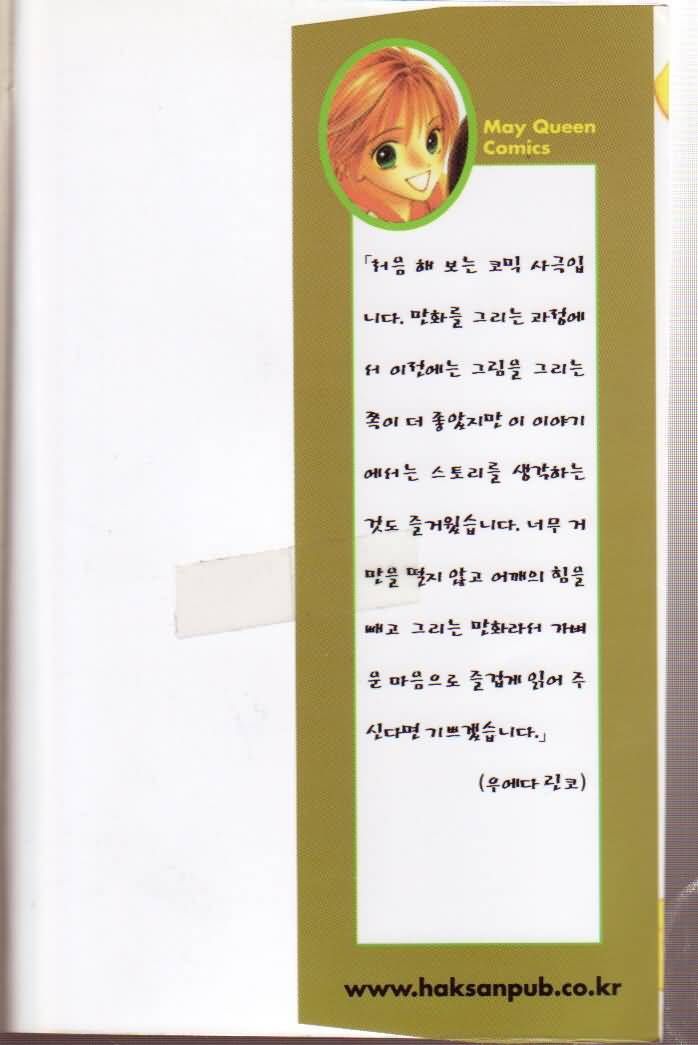 May Queen
Comics
「처음 해 보는 코믹 사극입
니다. 만화를 그리는 과정에
서 이전에는 그림을 그리는
쪽이 더 좋았지만 이 이야기
에서는 스토리를 생각하는
것도 즐거웠습니다. 너무 거
만을 떨지 않고 어깨의 힘을
빼고 그리는 만화라서 가벼
운 마음으로 즐겁게 읽어 주
신다면 기쁘겠습니다.」
(우에다 린코)
www.haksanpub.co.kr